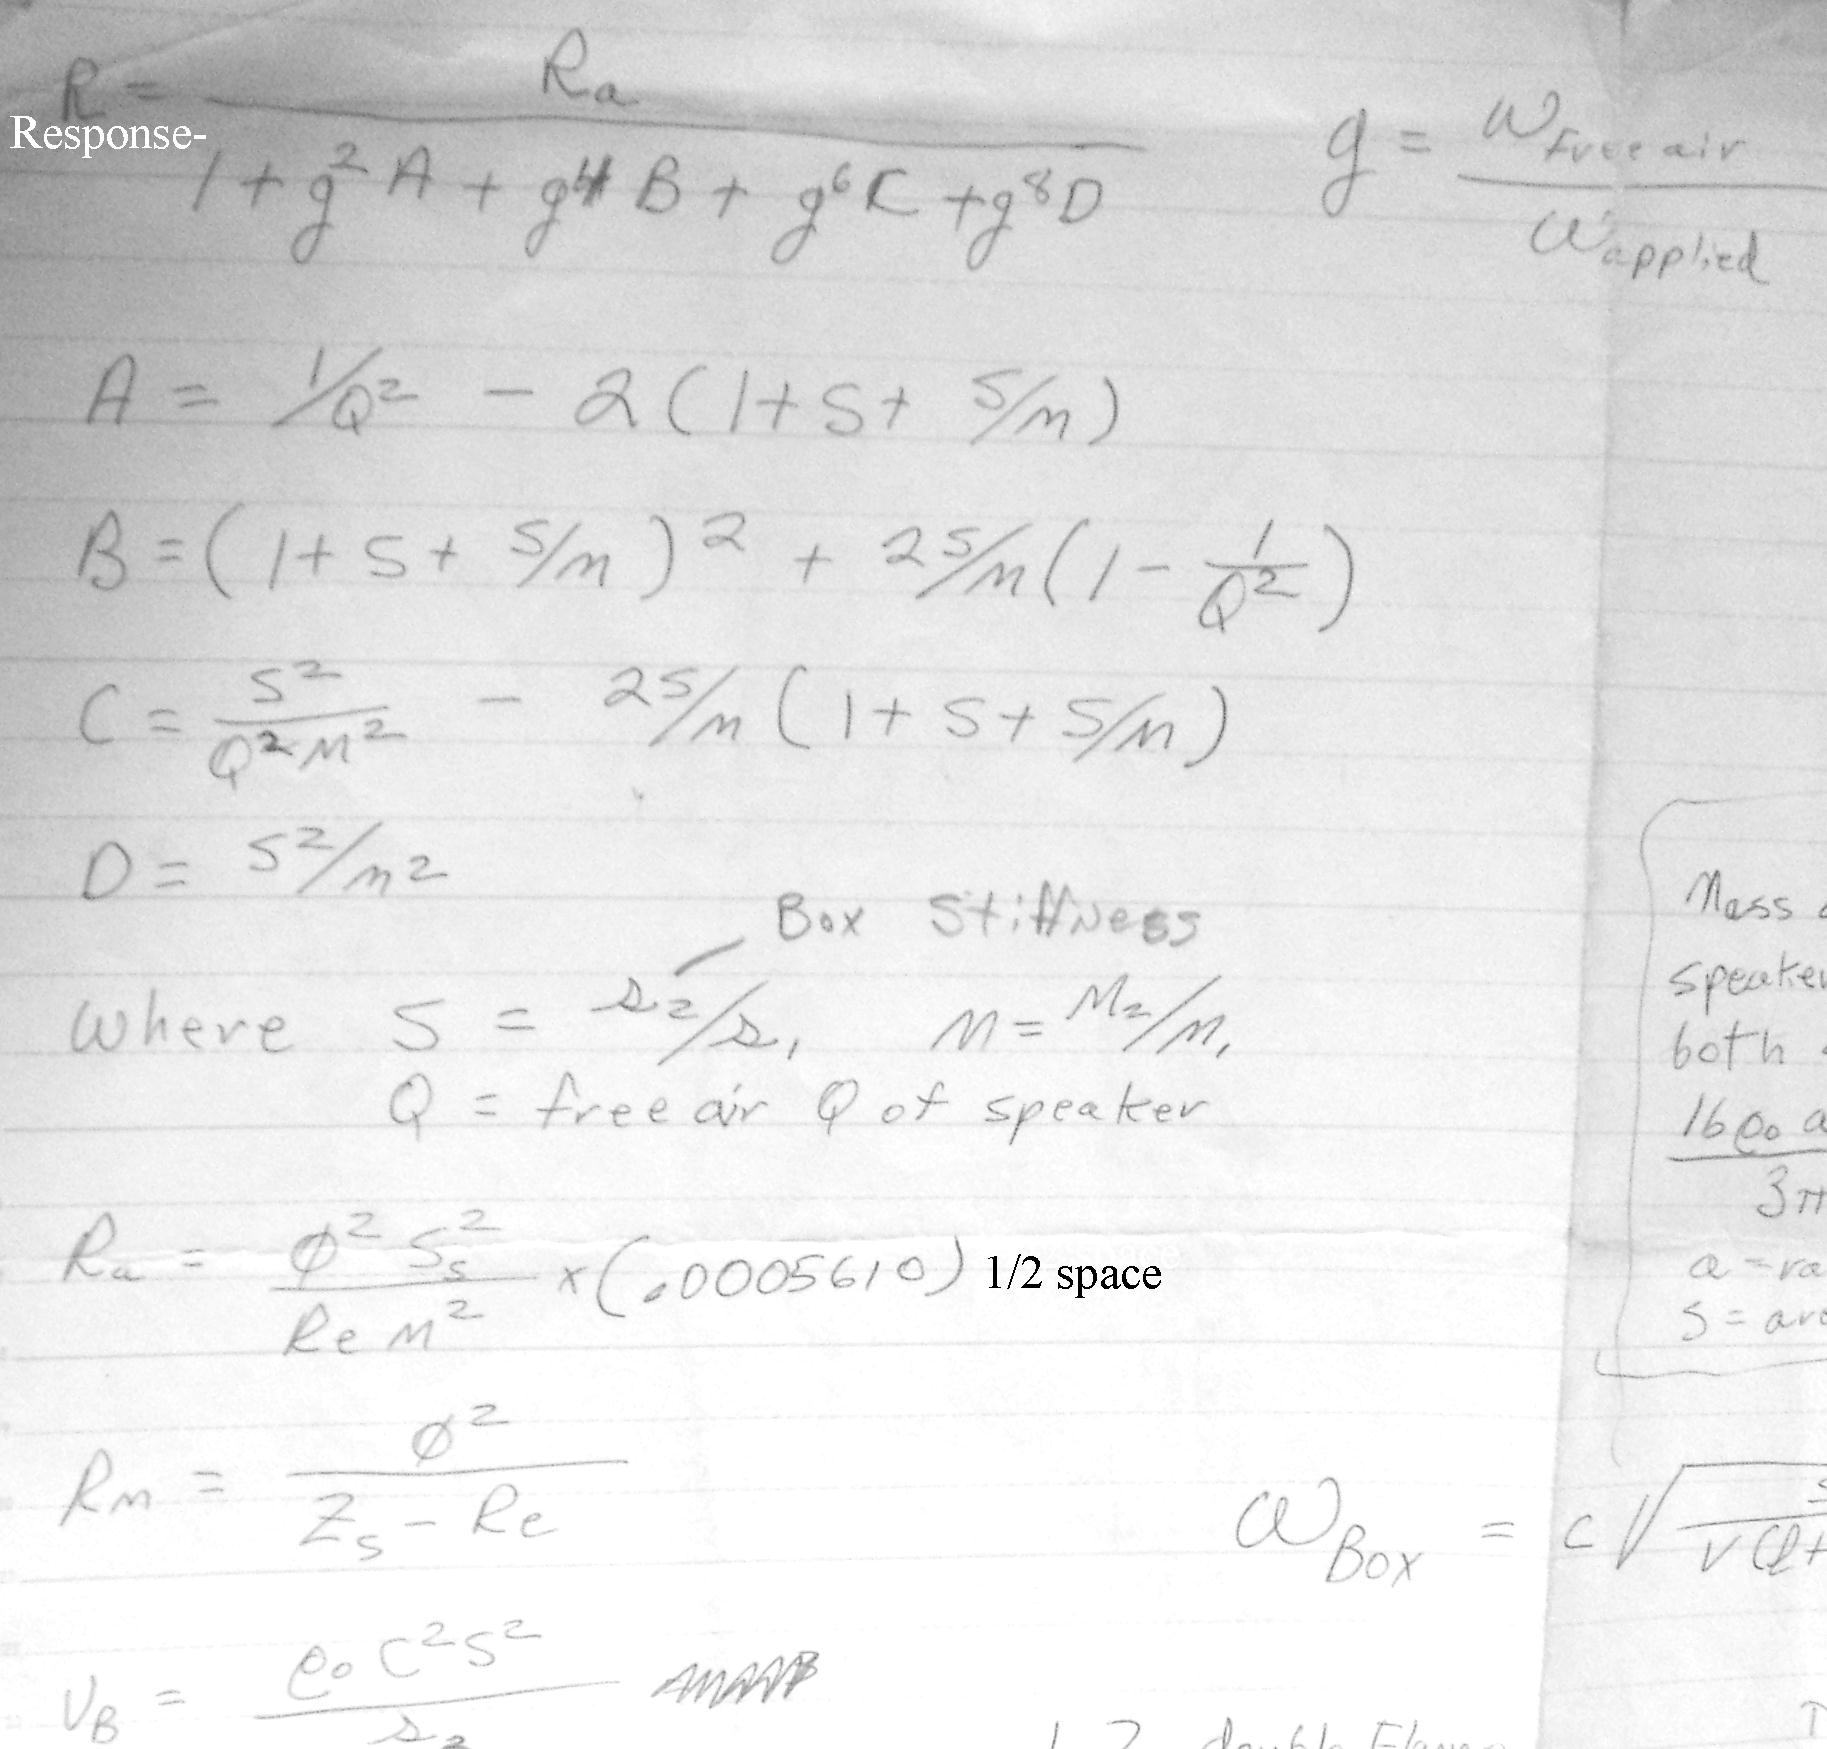 R = Ra / 1 + g² A + g⁴ B + g⁶ C + g⁸ D
Response-
g = ω free air / ω applied
A = 1/Q² - 2 (1 + S + S/m)
B = (1 + S + S/m)² + 2 S/m (1 - 1/Q²)
C = S² / Q² M² - 2 S/m (1 + S + S/m)
D = S²/m²
Box Stiffness
Where S = s₂/s₁ M = M₂/M₁
Q = free air Q of speaker
Ra = ϕ² Ss² / Re M² × (.0005610) 1/2 space
Rm = ϕ² / Zs - Re
VB = ρ₀ C² S² / s₂
Mass
speaker
both
16 ρ₀ a
3π
a = ra
S = are
ω Box = c √ S / V (l +
double